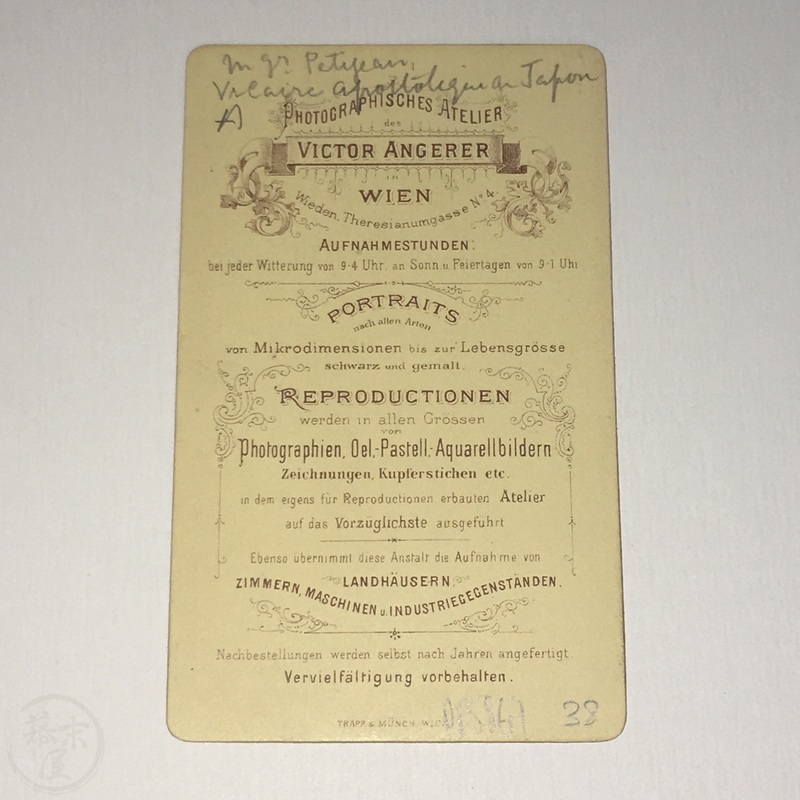 Mgr Petitjean,
Vicaire apostolique du Japon
A
PHOTOGRAPHISCHES ATELIER
des
VICTOR ANGERER
in
WIEN
Wieden, Theresianumgasse No 4.
AUFNAHMESTUNDEN:
bei jeder Witterung von 9-4 Uhr, an Sonn u. Feiertagen von 9-1 Uhr
PORTRAITS
nach allen Arten
von Mikrodimensionen bis zur Lebensgrösse
schwarz und gemalt.
REPRODUCTIONEN
werden in allen Grössen
von
Photographien, Oel,-Pastell,-Aquarellbildern
Zeichnungen, Kupferstichen etc.
in dem eigens für Reproductionen erbauten Atelier
auf das Vorzüglichste ausgeführt
Ebenso übernimmt diese Anstalt die Aufnahme von
LANDHÄUSERN,
ZIMMERN, MASCHINEN u. INDUSTRIEGEGENSTÄNDEN.
Nachbestellungen werden selbst nach Jahren angefertigt.
Vervielfältigung vorbehalten.
TRAPP & MÜNCH, WIEN
38
幕末屋